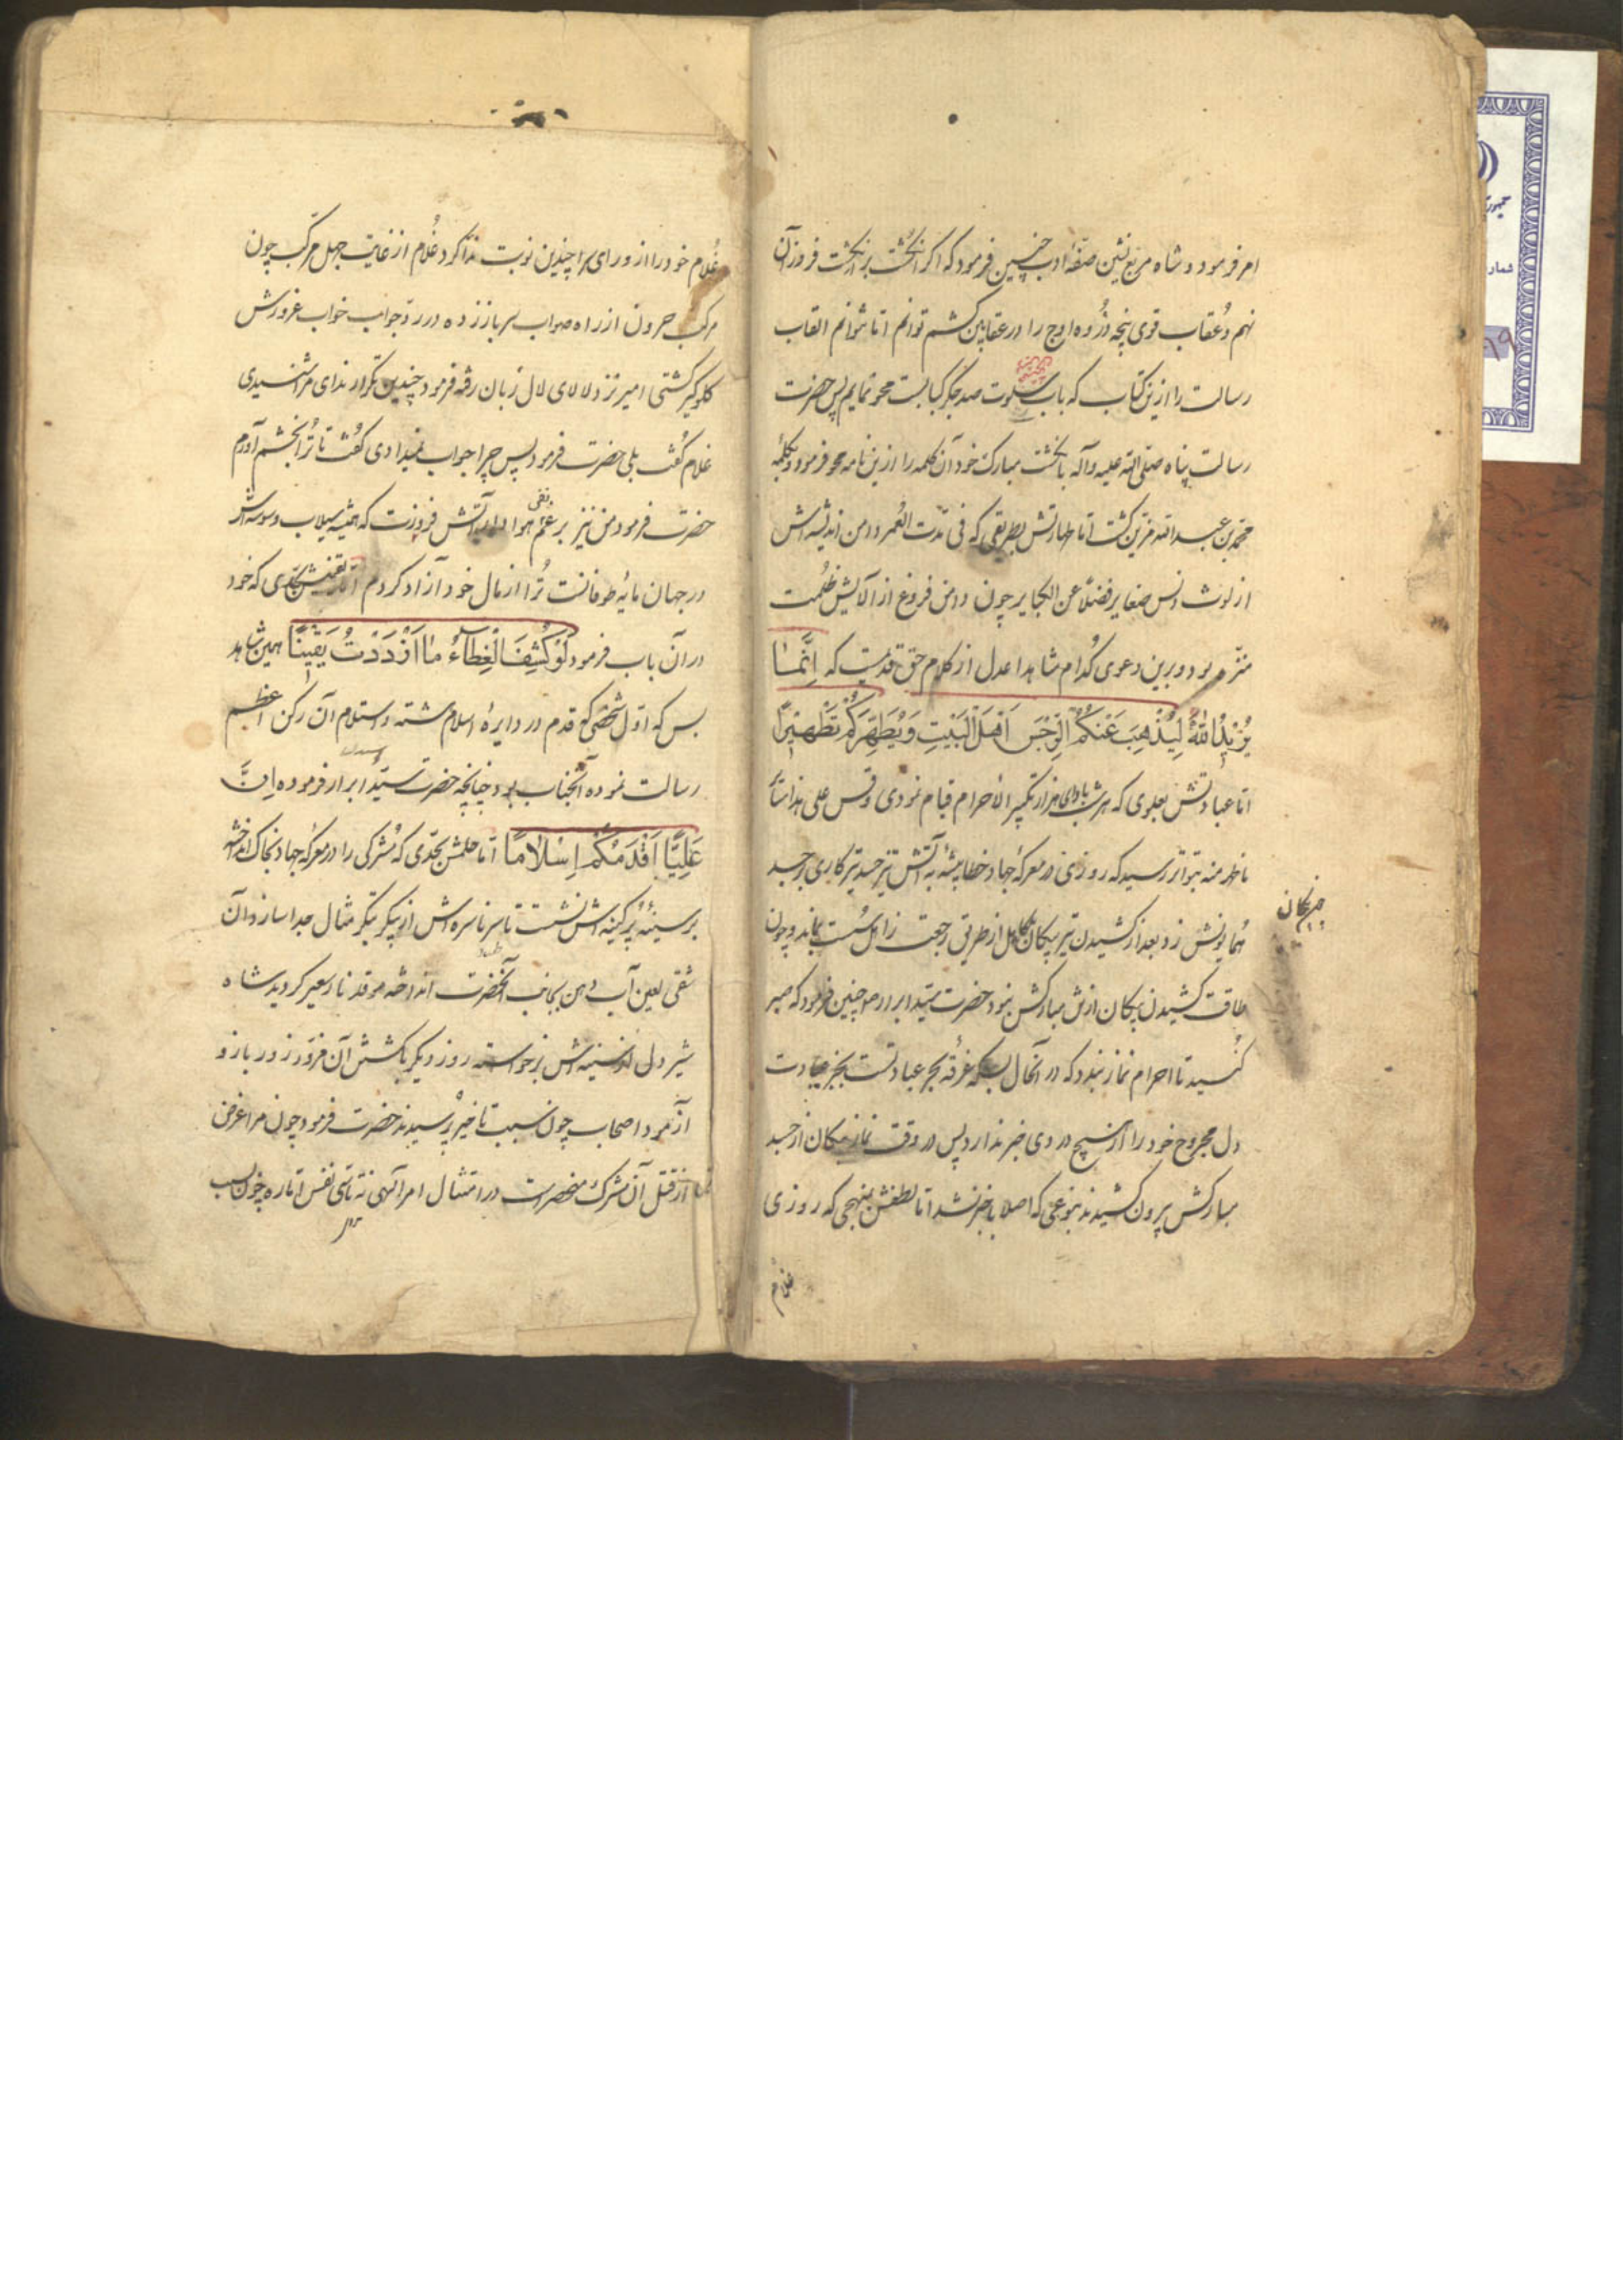 امر فرمود و شاه مربع نشین صفهٔ ادب چنین فرمود که اگر انگشت بر انگشت فروزان
نهم و عقاب قوی پنجه ذروه اوج را در عقابین کشم توانم اما نتوانم القاب
رسالت را ازین کتاب که باب سلوت صد جگر کبابست محو نمایم پس حضرت
رسالت پناه صلی الله علیه وآله بانگشت مبارک خود آن کلمه را ازین نامه محو فرمود و بکلمهٔ
محمد بن عبد الله مزین گشت اما طهارتش بطریقی که فی مدت العمر دامن اندیشه اش
از لوث دنس صغایر فضلًا عن الکبایر چون دامن فروغ از آلایش ظلمت
منزه بود و برین دعوی کدام شاهد اعدل از کلام حق قدیمست که اِنَّمٰا
یُرْیدُ اللهُ لِیُذْهِبَ عَنْکُمُ الرِّجْسَ اَهْلَ الْبَیْتِ وَیُطَهِّرَکُمْ تَطْهیْرًا
اما عبادتش بعلوی که هر شب بادای هزار تکبیر الاحرام قیام نمودی وقس علی هذا ستا
ماظهر منه بتواتر رسید که روزی در معرکهٔ جهاد خطا پیشهٔ به آتش تیز حسد تیر کاری بر جسد
همایونش زد و بعد از کشیدن تیر پیکان از طریق رجعت زایل سست بماند و چون
چر پیکان
طاقت کشیدن پیکان از تن مبارکش نبود حضرت سید ابرار صلو چنین فرمود که صبر
کنید تا احرام نماز بندد که در آنحال بسکه غرقهٔ بحر عبادتست بجز عبادت
دل مجروح خود را از هیچ در وی خبر ندارد پس در وقت نماز پیکان از جسد
مبارکش بیرون کشیدند بنوعی که اصلا با خبر نشد اما لطفش بنهجی که روزی
غلام
غلام خود را از ورای سرا چندین نوبت ندا کرد غلام از غایت جهل مرکب چون
مرکب حرون از راه صواب سر باز زده در رد جواب خواب غرورش
کلوگیر گشتی امیر نزد لالای لال زبان رفته فرمود چندین تکرار ندای مرا شنیدی
غلام گفت بلی حضرت فرمود پس چرا جواب نمیدادی گفت تا ترا بخشم آورم
حضرت فرمود من نیز برغم هوا دار آتش فروزت که همیشه سیلاب وسوسه اش
در جهان مایهٔ طوفانست ترا از مال خود آزاد کردم اما یقینش بحدی که خود
در آن باب فرمود لَوْ کُشِفَ الْغِطٰاءُ مٰا اَزْدَدْتُ یَقیْنًا همین شاهد
بس که اول شخصی که قدم در دایرهٔ اسلام گشته و استلام آن رکن اعظم
رسالت نموده آنجناب بود چنانچه حضرت سید ابرار فرموده اِنَّ
عَلِیًّا اَقْدَمُکُمْ اِسْلٰامًا اما حلمش بحدی که مشرکی را در معرکه جهاد بخاک انداخته
بر سینهٔ پر کینه اش نشست تا سر ناسره اش از پیکر بتگر مثال جدا سازد آن
شقی لعین آب دهن بجانب آنحضرت انداخته موقد نار سعیر گردید شاه
شیر دل از سینه اش برخواسته روز دیگر بکشتن آن مزور زور بازو
آزمود اصحاب چون سبب تاخیر پرسیدند حضرت فرمود چون مرا غرض
از قتل آن مشرک منحصرست در امتثال امر الهی نه تاسی نفس اماره چون بسب